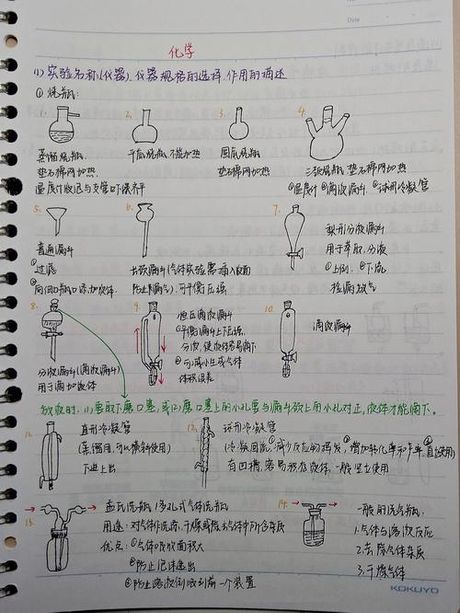 No.
Date
化学
(1) 实验名称(仪器)、仪器规格的选择、作用的描述
① 烧瓶:
1.
2.
3.
4.
蒸馏烧瓶
平底烧瓶,不能加热
圆底烧瓶
三颈烧瓶 垫石棉网加热
垫石棉网加热
垫石棉网加热
①温度计 ②滴液漏斗 ③球形冷凝管
温度计水银与支管口下缘齐平
5.
6.
7.
普通漏斗
长颈漏斗(气体实验需插入液面
梨形分液漏斗
①过滤
防止漏气),可平衡压强
用于萃取、分液
②向细口瓶口添加液体
①上倒 ②下流
检漏放气
8.
9.
10.
恒压滴液漏斗
滴液漏斗
①平衡漏斗上下压强,
分液,使液体易滴下
②可减小生成气体
体积误差
分液漏斗(滴液漏斗)
用于滴加液体
放液时,(1)要取下磨口塞,或(2)磨口塞上的小孔要与漏斗颈上的小孔对正,液体才能滴下。
11.
直形冷凝管
12.
球形冷凝管
(蒸馏用,可以倾斜使用)
(冷凝回流,减少反应物挥发,增加转化率和产率,直立使用)
下进上出
有凹槽,容易残存液体,一般竖立使用
13.
孟氏洗瓶/多孔式气体洗瓶
14.
一般的洗气瓶
用途:对气体洗涤、干燥或除去气体中所含杂质
1.气体与溶液反应
优点:①气体吸收面积大
2.去除气体杂质
②防止泡沫逸出
3.干燥气体
③防止溶液倒吸到前一个装置
KOKUYO